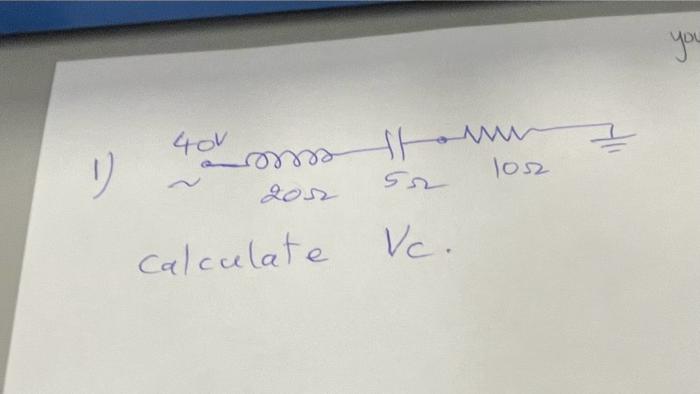 you
1) 40V
~ 20Ω 5Ω 10Ω
Calculate Vc.